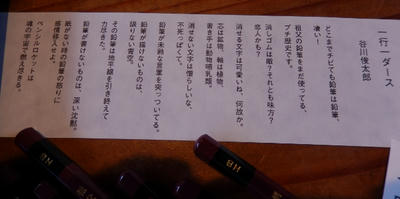 一行一ダース
谷川俊太郎
どこまでチビても鉛筆は鉛筆、
凄い！
祖父の鉛筆をまだ使ってる、
プチ歴史です。
消しゴムは敵？それとも味方？
恋人かも？
消せる文字は可愛いね、何故か。
芯は鉱物、軸は植物、
書き手は動物哺乳類。
消せない文字は憎らしいな、
不死っぽくて。
鉛筆が未熟な言葉を突っついてる。
鉛筆が描けないものは、
限りない青空。
その鉛筆は地平線を引き終えて
力尽きた。
鉛筆が書けないものは、深い沈黙。
紙がない時の鉛筆の怒りに
感情移入せよ。
ペンシルロケットは
魂の宇宙で燃え尽きる。
HB